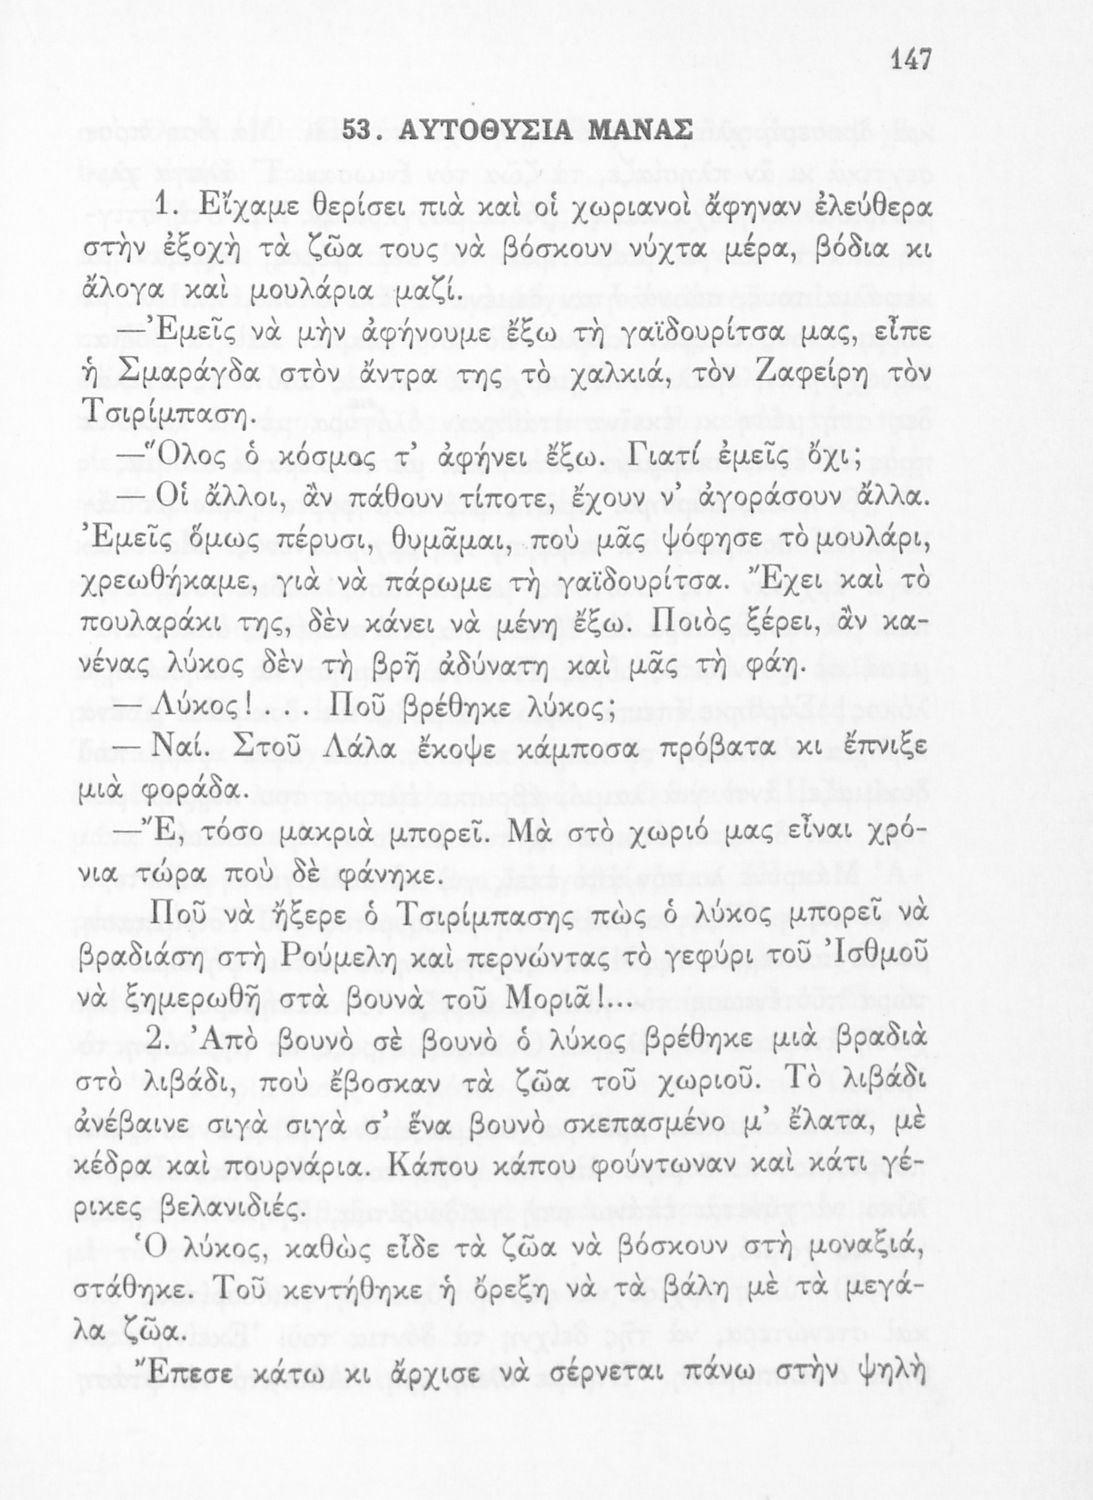 147
53. ΑΥΤΟΘΥΣΙΑ ΜΑΝΑΣ
1. Εἴχαμε θερίσει πιὰ καὶ οἱ χωριανοὶ ἄφηναν ἐλεύθερα
στὴν ἐξοχὴ τὰ ζῶα τους νὰ βόσκουν νύχτα μέρα, βόδια κι
ἄλογα καὶ μουλάρια μαζί.
—Ἐμεῖς νὰ μὴν ἀφήνουμε ἔξω τὴ γαϊδουρίτσα μας, εἶπε
ἡ Σμαράγδα στὸν ἄντρα της τὸ χαλκιά, τὸν Ζαφείρη τὸν
Τσιρίμπαση.
—Ὅλος ὁ κόσμος τ’ ἀφήνει ἔξω. Γιατί ἐμεῖς ὄχι;
— Οἱ ἄλλοι, ἂν πάθουν τίποτε, ἔχουν ν’ ἀγοράσουν ἄλλα.
Ἐμεῖς ὅμως πέρυσι, θυμᾶμαι, ποὺ μᾶς ψόφησε τὸ μουλάρι,
χρεωθήκαμε, γιὰ νὰ πάρωμε τὴ γαϊδουρίτσα. Ἔχει καὶ τὸ
πουλαράκι της, δὲν κάνει νὰ μένη ἔξω. Ποιὸς ξέρει, ἂν κα-
νένας λύκος δὲν τὴ βρῆ ἀδύνατη καὶ μᾶς τὴ φάη.
— Λύκος!.... Ποῦ βρέθηκε λύκος;
— Ναί. Στοῦ Λάλα ἔκοψε κάμποσα πρόβατα κι ἔπνιξε
μιὰ φοράδα.
—Ἔ, τόσο μακριὰ μπορεῖ. Μὰ στὸ χωριό μας εἶναι χρό-
νια τώρα ποὺ δὲ φάνηκε.
Ποῦ νὰ ἤξερε ὁ Τσιρίμπασης πὼς ὁ λύκος μπορεῖ νὰ
βραδιάση στὴ Ρούμελη καὶ περνώντας τὸ γεφύρι τοῦ Ἰσθμοῦ
νὰ ξημερωθῆ στὰ βουνὰ τοῦ Μοριᾶ!...
2. Ἀπὸ βουνὸ σὲ βουνὸ ὁ λύκος βρέθηκε μιὰ βραδιὰ
στὸ λιβάδι, ποὺ ἔβοσκαν τὰ ζῶα τοῦ χωριοῦ. Τὸ λιβάδι
ἀνέβαινε σιγὰ σιγὰ σ’ ἕνα βουνὸ σκεπασμένο μ’ ἔλατα, μὲ
κέδρα καὶ πουρνάρια. Κάπου κάπου φούντωναν καὶ κάτι γέ-
ρικες βελανιδιές.
Ὁ λύκος, καθὼς εἶδε τὰ ζῶα νὰ βόσκουν στὴ μοναξιά,
στάθηκε. Τοῦ κεντήθηκε ἡ ὄρεξη νὰ τὰ βάλη μὲ τὰ μεγά-
λα ζῶα.
Ἔπεσε κάτω κι ἄρχισε νὰ σέρνεται πάνω στὴν ψηλὴ